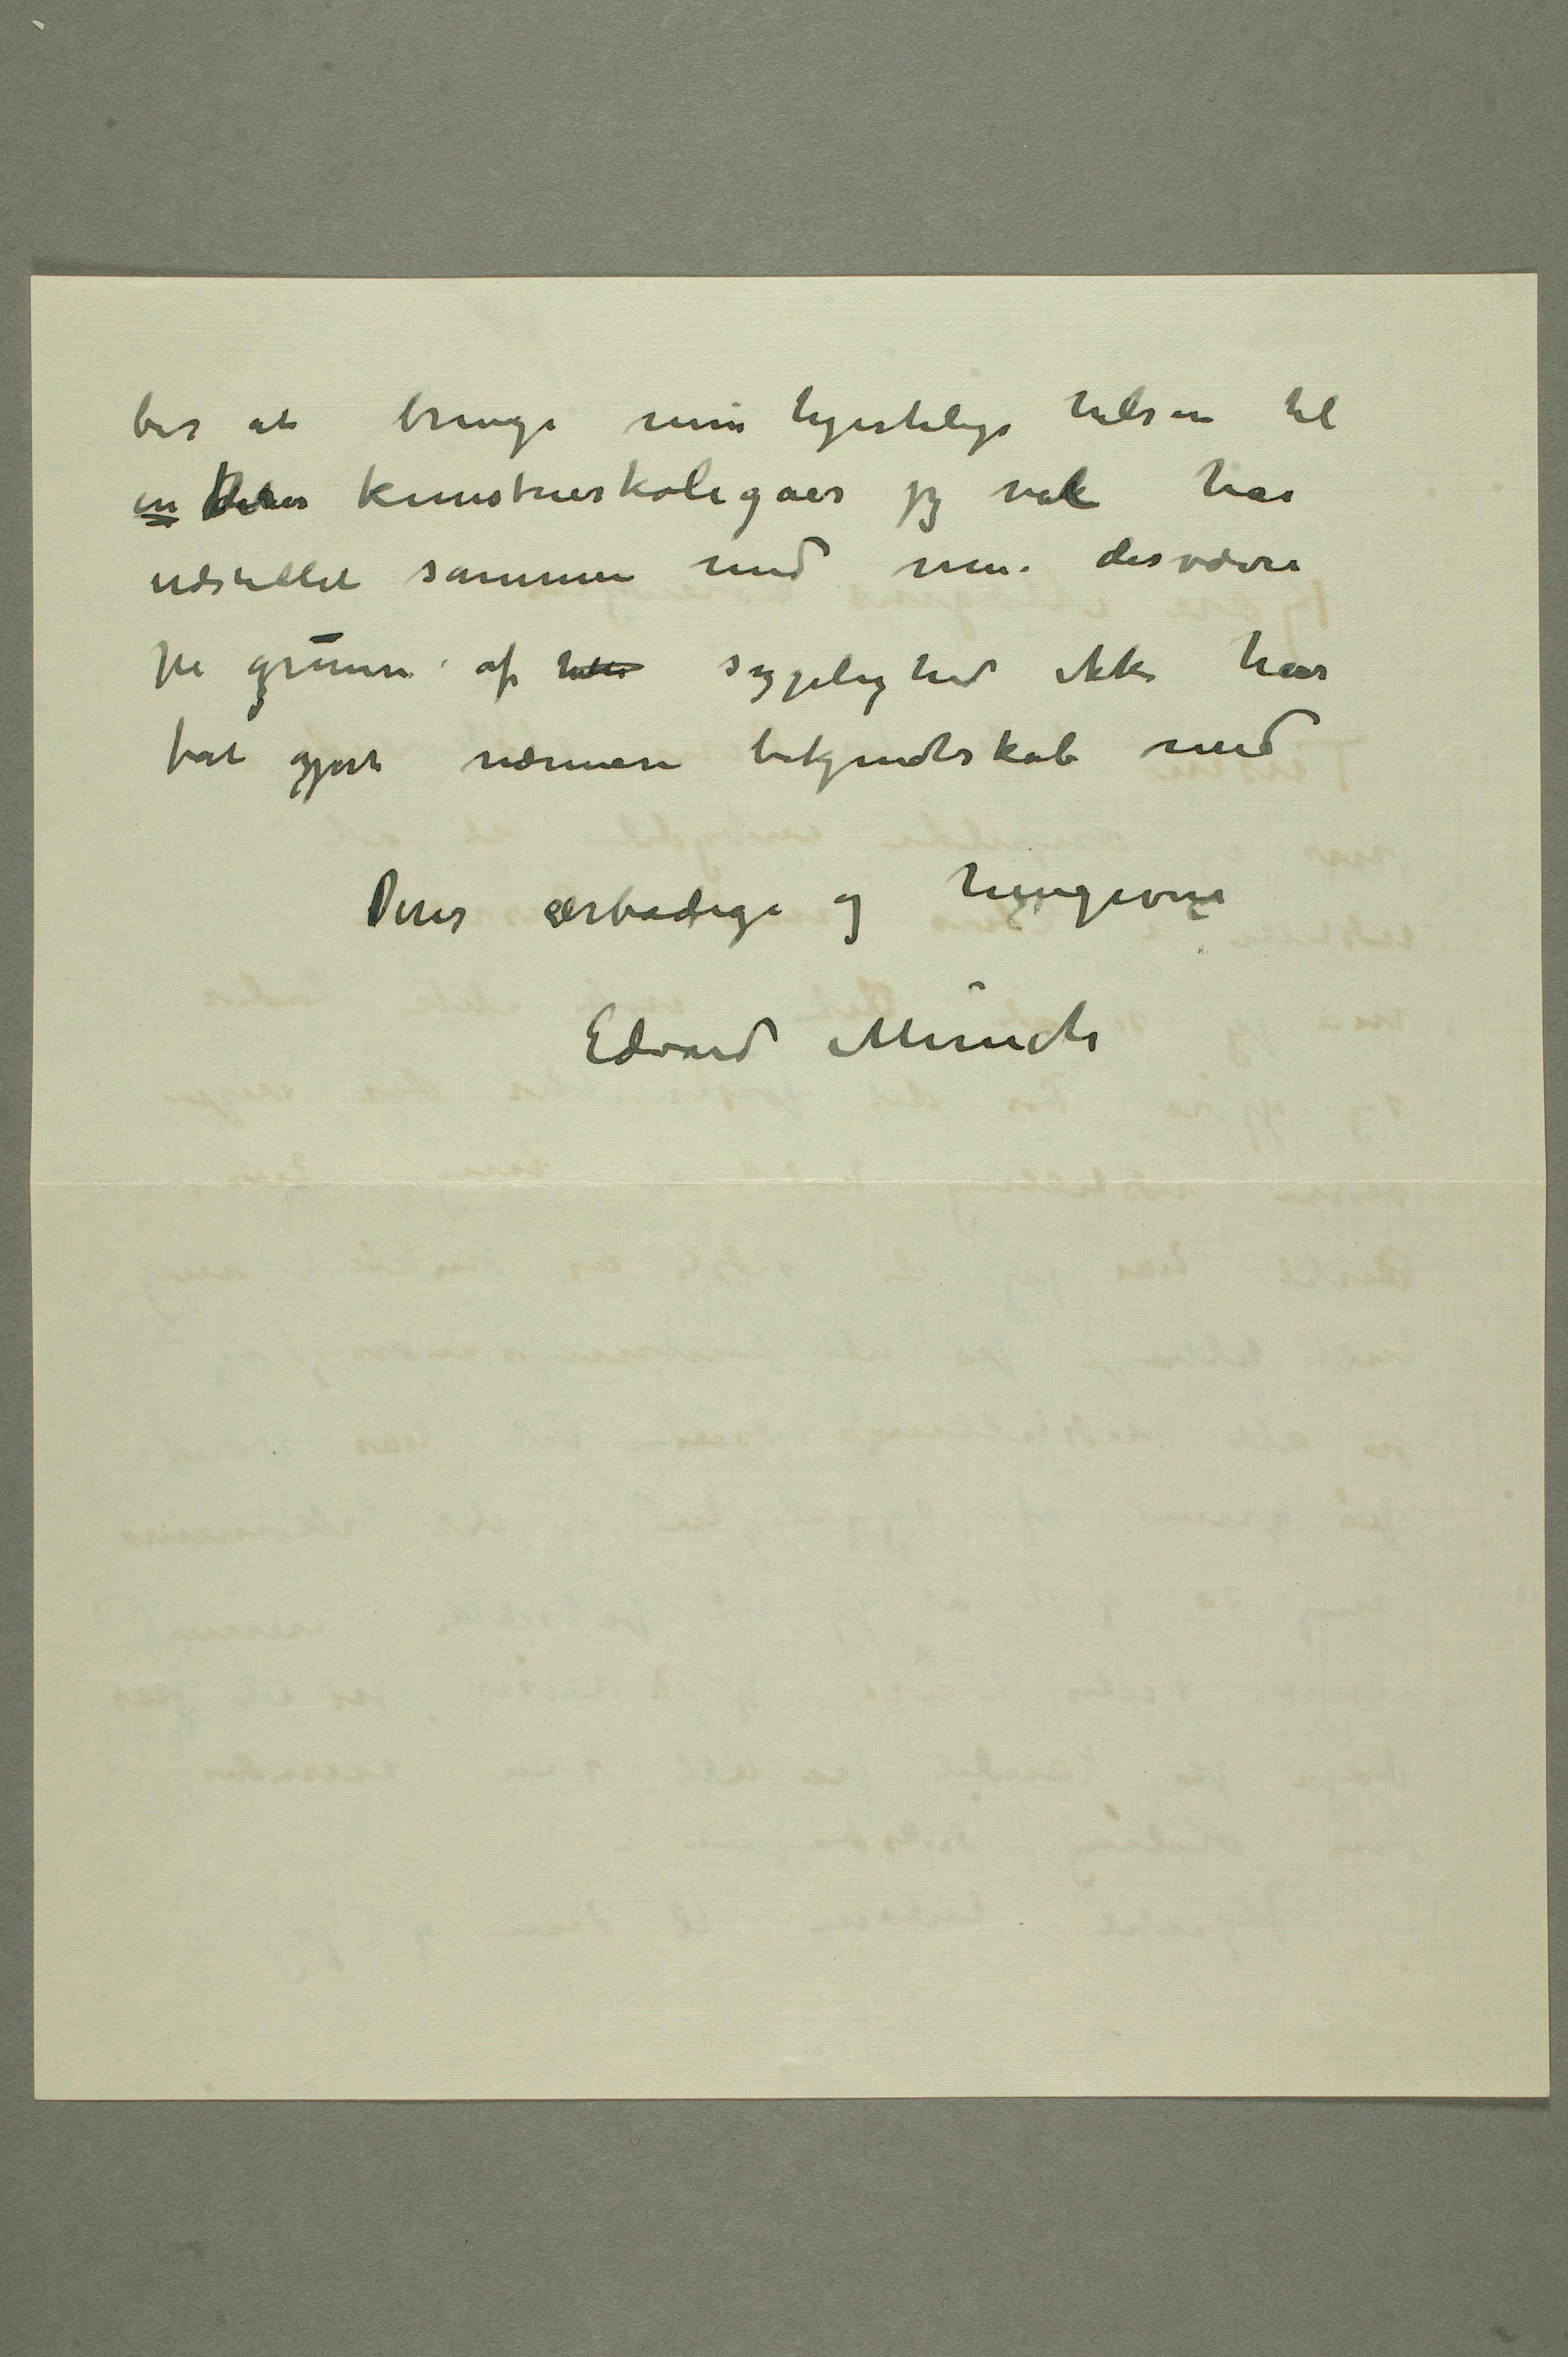 ber at bringe min hjertelige hilsen til
Deres kunstnerkolegaer jeg nok har
udstillet sammen med men desværre
på grunn af sygelighed ikke har
fåt gjort nærmere bekjendtskab med
Deres ærbødige og hengivne
Edvard Munch